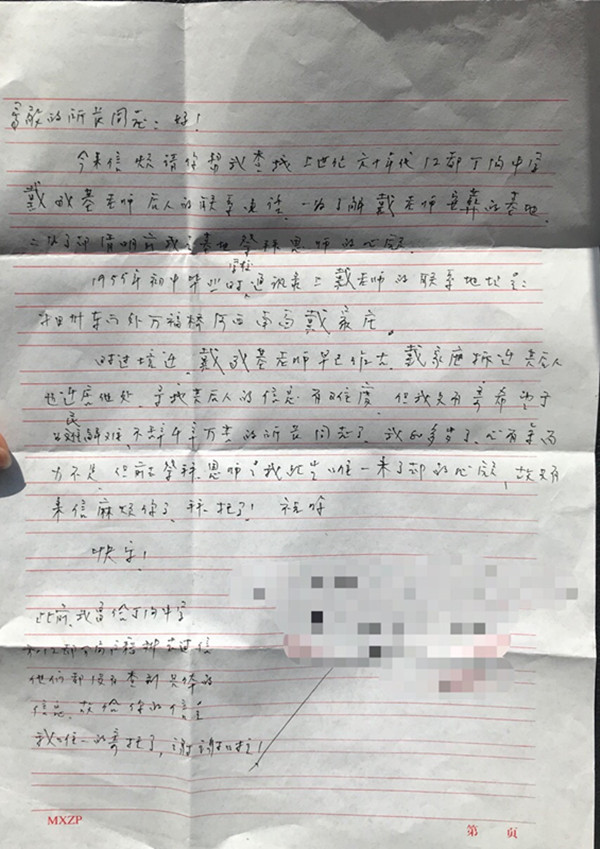 尊敬的所长同志：好！
今来信烦请你帮我查找上世纪六十年代江都丁沟中学
戴成基老师后人的联系电话，一为了解戴老师安葬的墓地，
二为了却清明前我去墓地祭拜恩师的心愿。
1955年初中毕业时学校通讯录上戴老师的联系地址是：
扬州东门外万福桥河西南高戴家庄。
时过境迁，戴成基老师早已作古，戴家庄拆迁其后人
也迁居他处，寻找其后人的信息有难度，但我只有寄希望于
为民解难、不辞千辛万苦的所长同志了，我 多岁了，心有余而
力不足，但前去祭拜恩师是我此生唯一未了却的心愿，故只有
来信麻烦你了，拜托了！祝你
快安！
此前，我曾给丁沟中学
和江都 寄过信
他们都没有查到具体的
信息，故给你的信是
我唯一的寄托了，谢谢拜托！
MXZP
第 页